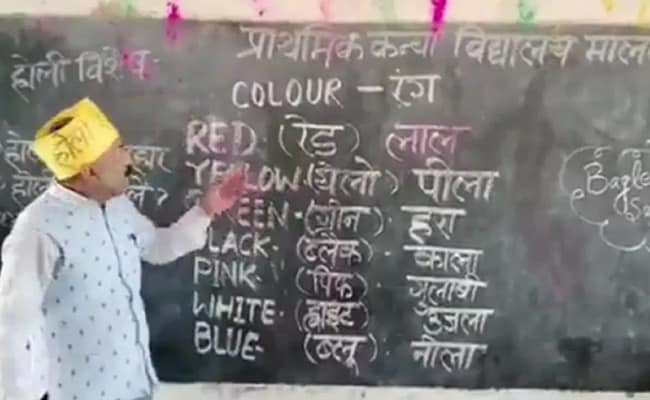 प्राथमिक कन्या विद्यालय माल
होली विशेष
COLOUR - रंग
RED. (रेड) लाल
YELLOW. (येलो) पीला
GREEN. (ग्रीन). हरा
BLACK. (ब्लैक). काला
PINK. (पिंक). गुलाबी
WHITE. (ह्वाइट) उजला
BLUE- (ब्लू). नीला
होली
Bagle